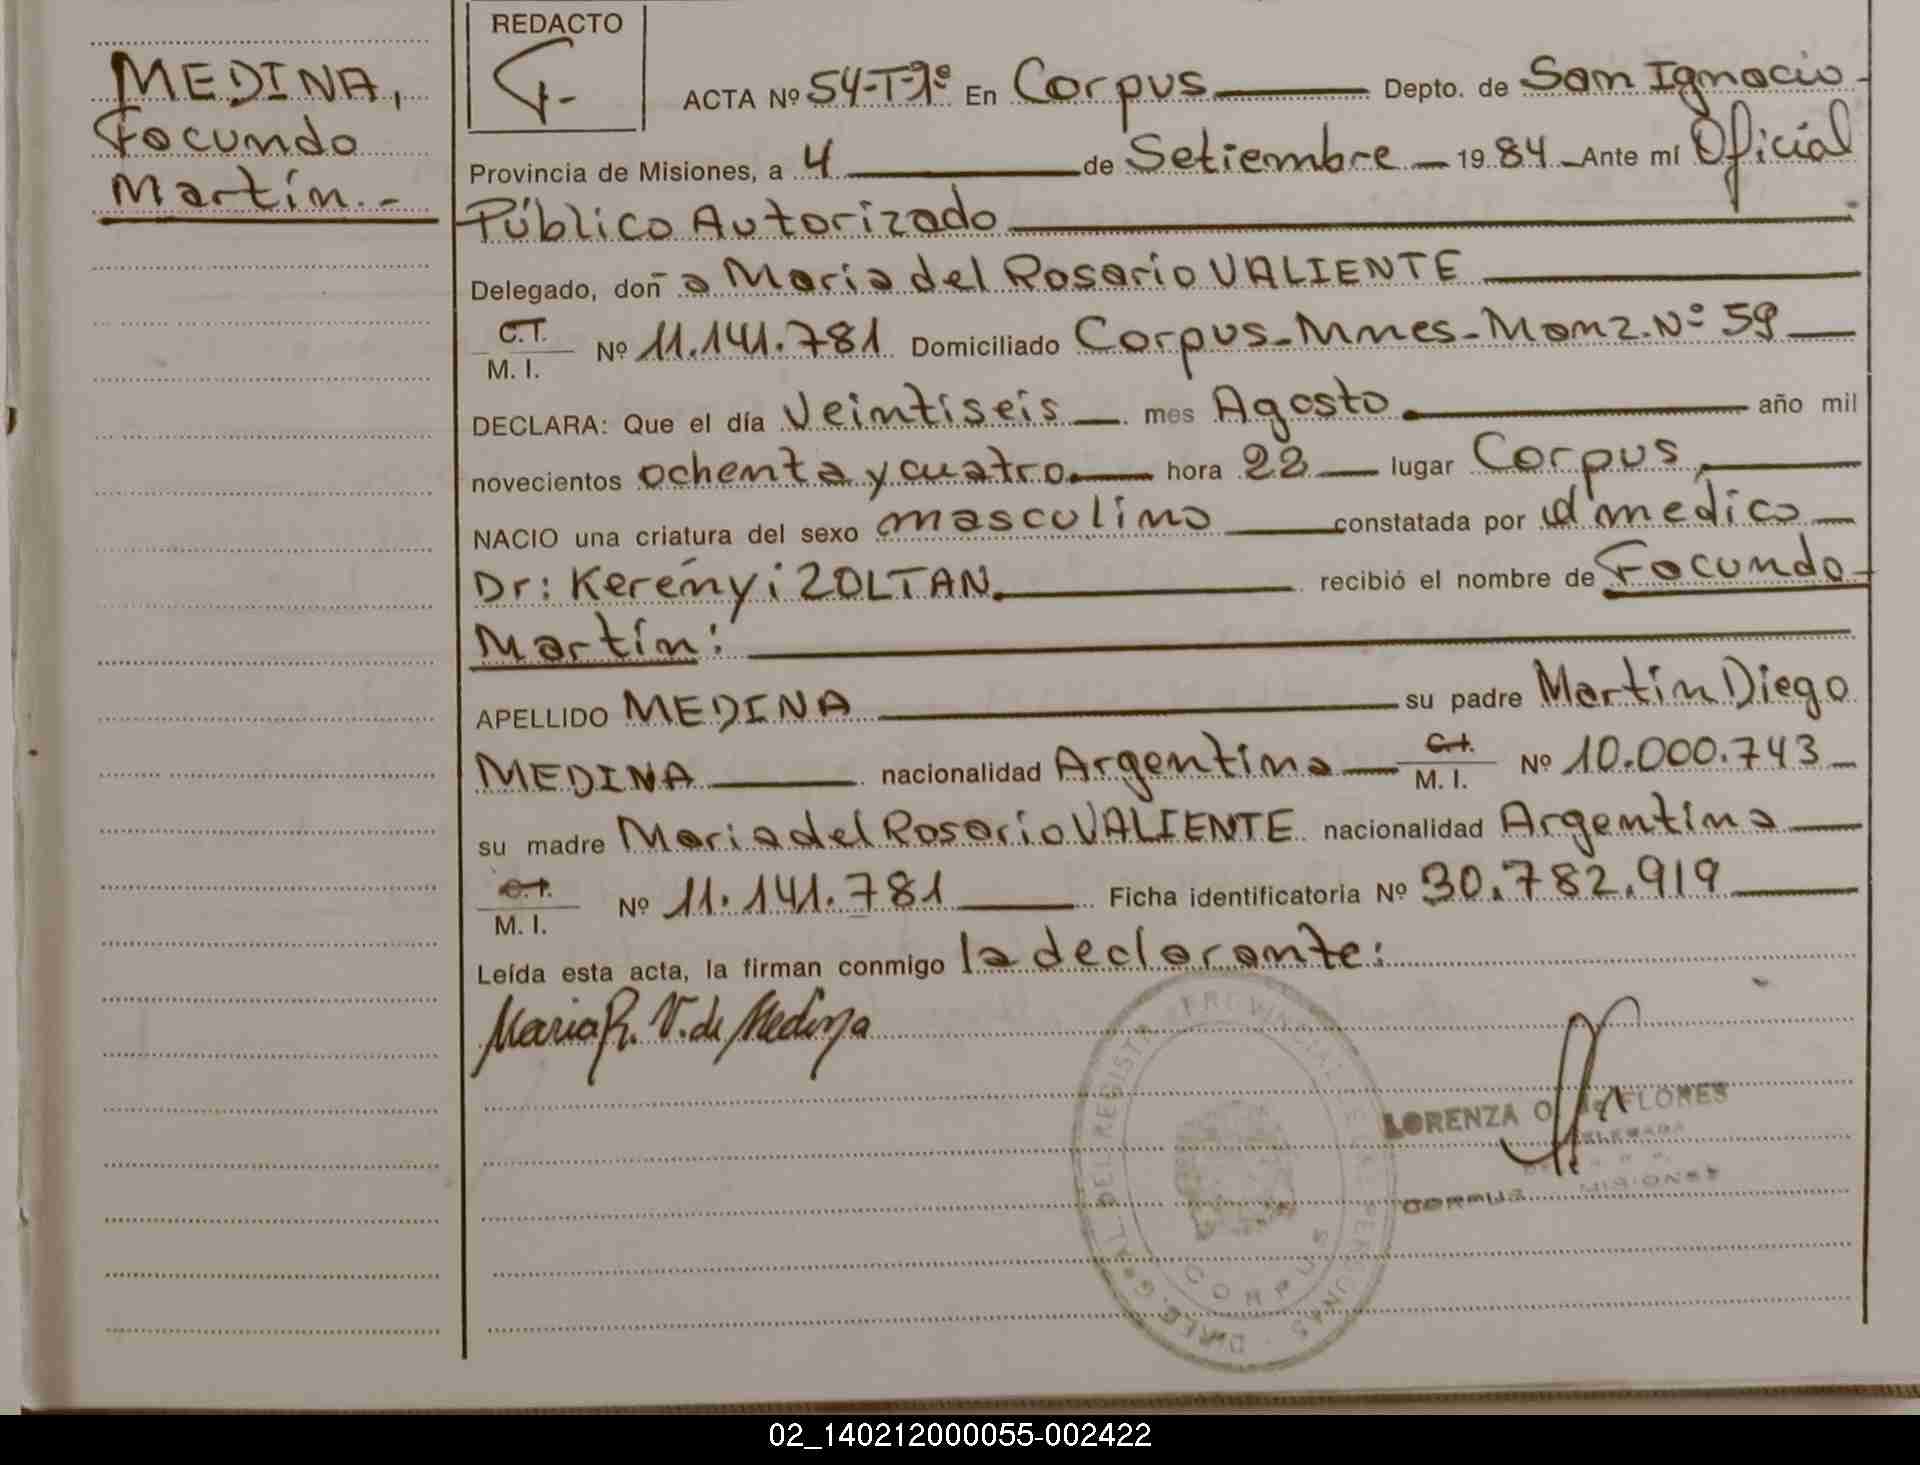 MEDINA,
Facundo
Martín.-
REDACTO
ACTA Nº 54-T-1º En Corpus Depto. de San Ignacio-
Provincia de Misiones, a 4 de Setiembre 1984 Ante mí Oficial
Público Autorizado
Delegado, doña Maria del Rosario VALIENTE
C.I.
M. I. Nº 11.141.781 Domiciliado Corpus-Mnes-Manz. Nº 59
DECLARA: Que el día Veintiseis mes Agosto año mil
novecientos ochenta y cuatro hora 22 lugar Corpus
NACIO una criatura del sexo masculino constatada por el medico
Dr: Kerényi ZOLTAN recibió el nombre de Facundo
Martín:
APELLIDO MEDINA su padre Martín Diego
MEDINA nacionalidad Argentina C.I.
M. I. Nº 10.000.743
su madre Maria del Rosario VALIENTE nacionalidad Argentina
C.I.
M. I. Nº 11.141.781 Ficha identificatoria Nº 30.782.919
Leída esta acta, la firman conmigo la declarante:
Maria R. V. de Medina
PROVINCIAL DE LAS PERSONAS · DIREC. GRAL. DEL REGISTRO
CORPUS
LORENZA O. de FLORES
DELEGADA
CORPUS MISIONES
02_140212000055-002422